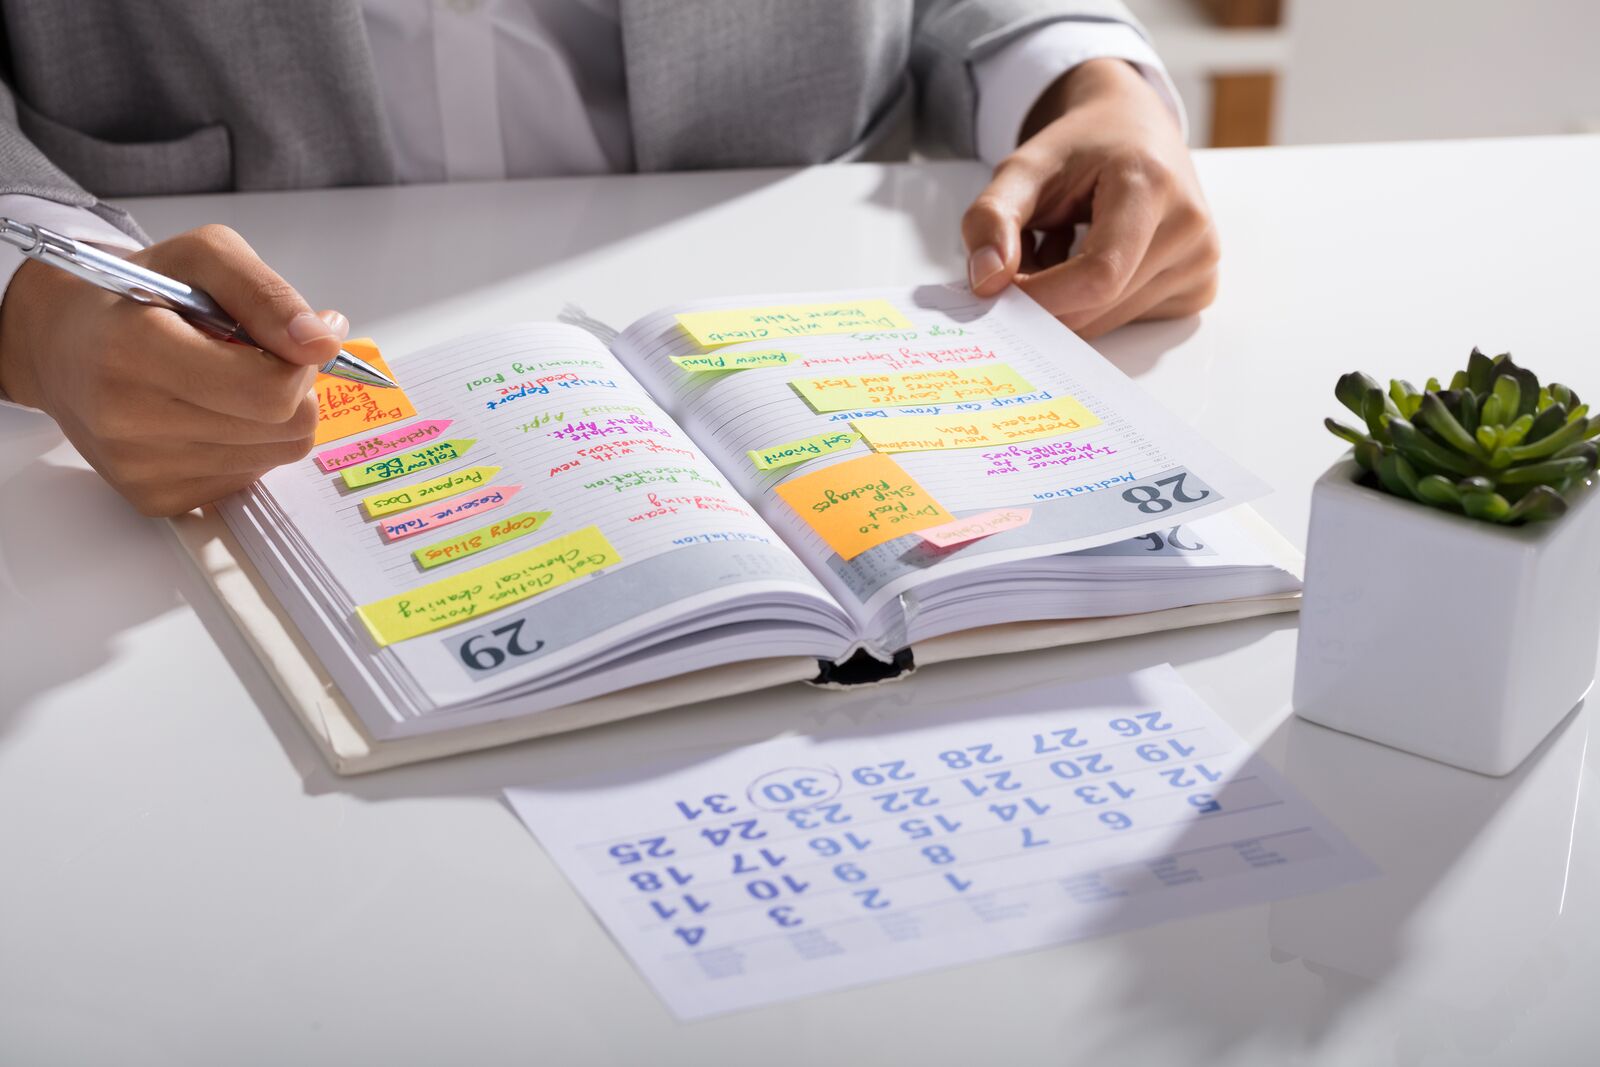 28
26
Meditation
Introduce new
Manager to
Colleagues
Prepare new Milestone
Project Plan
Pickup Car from Dealer
Select Service
Providers for
Review and Test
Marketing Department
Yoga Classes
Set Priorit
Review Plans
Dinner with Clients
Reserve Table
Drive to
Post
Ship
Packages
29
Meditation
Weekly team
meeting
New Project
Presentation
Lunch with new
Investors
Real Estate
Agent Appt.
Dentist Appt.
Finish Report
Deadline
Swimming Pool
Get Clothes from
Chemical cleaning
Copy Slides
Reserve Table
Prepare Docs
Follow up
with Dev
Update Charts
By
Bacon
Egg
Milk
1 2 3 4
5 6 7 8 9 10 11
12 13 14 15 16 17 18
19 20 21 22 23 24 25
26 27 28 29 30 31